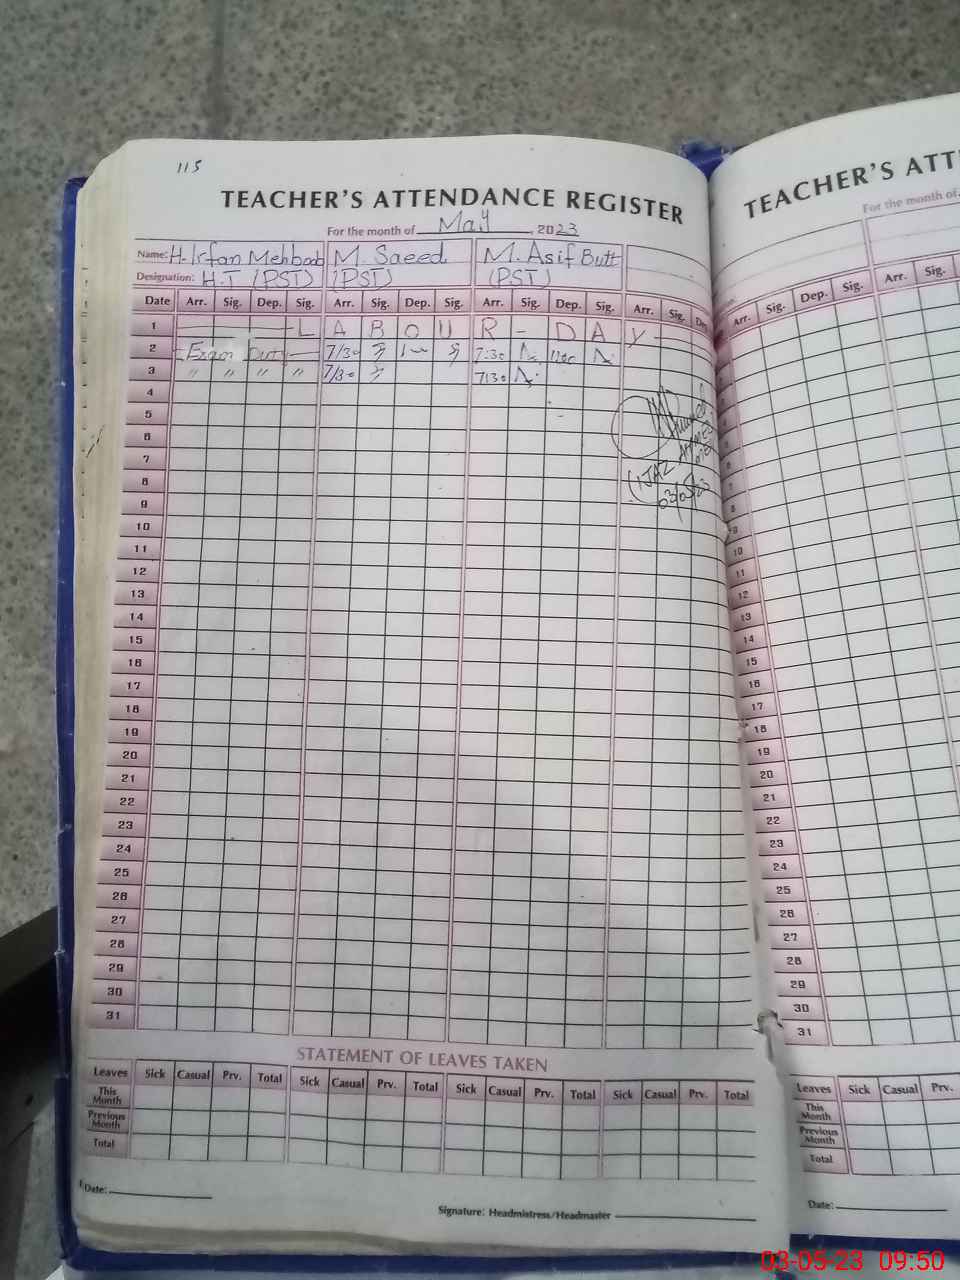 115
TEACHER'S ATTENDANCE REGISTER
For the month of May, 2023
Name: H. Irfan Mehboob M. Saeed M. Asif Butt
Designation: H.T (PST) (PST) (PST)
Date Arr. Sig. Dep. Sig. Arr. Sig. Dep. Sig. Arr. Sig. Dep. Sig. Arr. Sig. Dep
1 L A B O U R - D A Y
2 Exam Duty 7/30 7:30
3 " " " " 7/30 7:30
4
5
6
7
8
9
10
11
12
13
14
15
16
17
18
19
20
21
22
23
24
25
26
27
28
29
30
31
(IJAZ AHMED
03/05/23
STATEMENT OF LEAVES TAKEN
Leaves Sick Casual Prv. Total Sick Casual Prv. Total Sick Casual Prv. Total Sick Casual Prv. Total
This Month
Previous Month
Total
Date:
Signature: Headmistress/Headmaster
TEACHER'S ATT
For the month of
Arr. Sig. Dep. Sig. Arr. Sig.
10
11
12
13
14
15
16
17
18
19
20
21
22
23
24
25
26
27
28
29
30
31
Leaves Sick Casual Prv.
This Month
Previous Month
Total
Date:
03-05-23 09:50